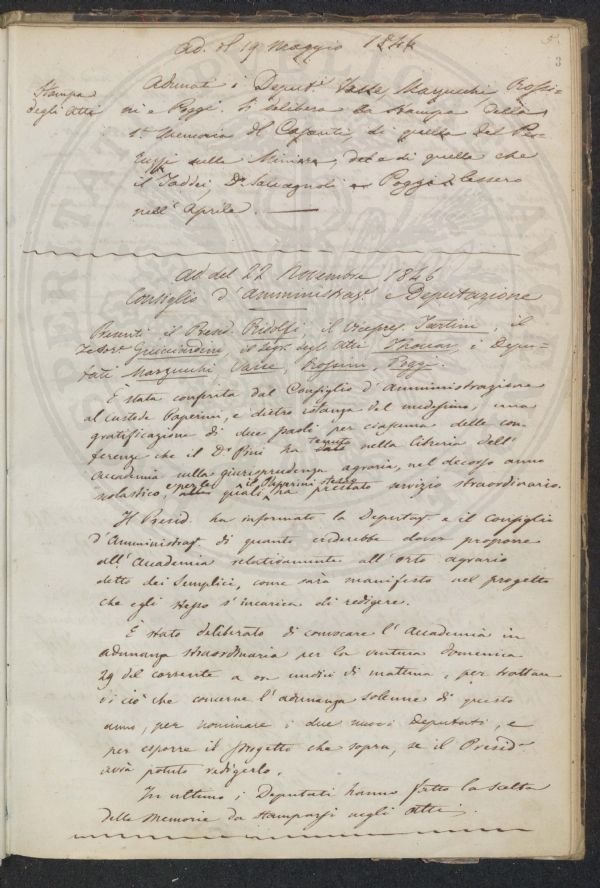 5.
3
Ad. del 19 Maggio 1846
Stampa
degli Atti
Adunati i Deputi. Vasse, Marzucchi, Rossi-
ni e Poggi. Si delibera la stampa della
1a. Memoria del Caporti, di quella del Pe-
ruzzi sulle Miniere, ed e di quelle che
il Taddei, Dr. Salvagnoli e Poggi lessero
nell'Aprile.
Ad. del 22 Novembre 1846
Consiglio d'Amministraz. e Deputazione
Presenti il Presid. Ridolfi, il Vicepres. Tartini, il
Tesor. Guicciardini, il Segr. degli Atti Thouar, i Depu-
tati Marzucchi, Vasse, Rossini, Poggi.
È stata conferita dal Consiglio d'Amministrazione
al custode Paperini, e dietro istanza del medesimo, una
gratificazione di due paoli per ciascuna delle con-
ferenze che il Dr. Pini ha tenute nella Libreria dell'
Accademia sulla giurisprudenza agraria, nel decorso anno
scolastico, e per le quali il Paperini stesso ha prestato servizio straordinario.
Il Presid. ha informato la Deputaz. e il Consiglio
d'Amministraz. di quanto crederebbe dover proporre
all'Accademia relativamente all'orto agrario
detto dei Semplici, come sarà manifesto nel progetto
che egli stesso s'incarica di redigere.
È stato deliberato di convocare l'Accademia in
adunanza straordinaria per la ventura domenica
29 del corrente a ore undici di mattina, per trattare
di ciò che concerne l'adunanza solenne di questo
anno, per nominare i due nuovi Deputati, e
per esporre il progetto che sopra, se il Presid.
avrà potuto redigerlo.
In ultimo i Deputati hanno fatto la scelta
delle Memorie da stamparsi negli Atti.